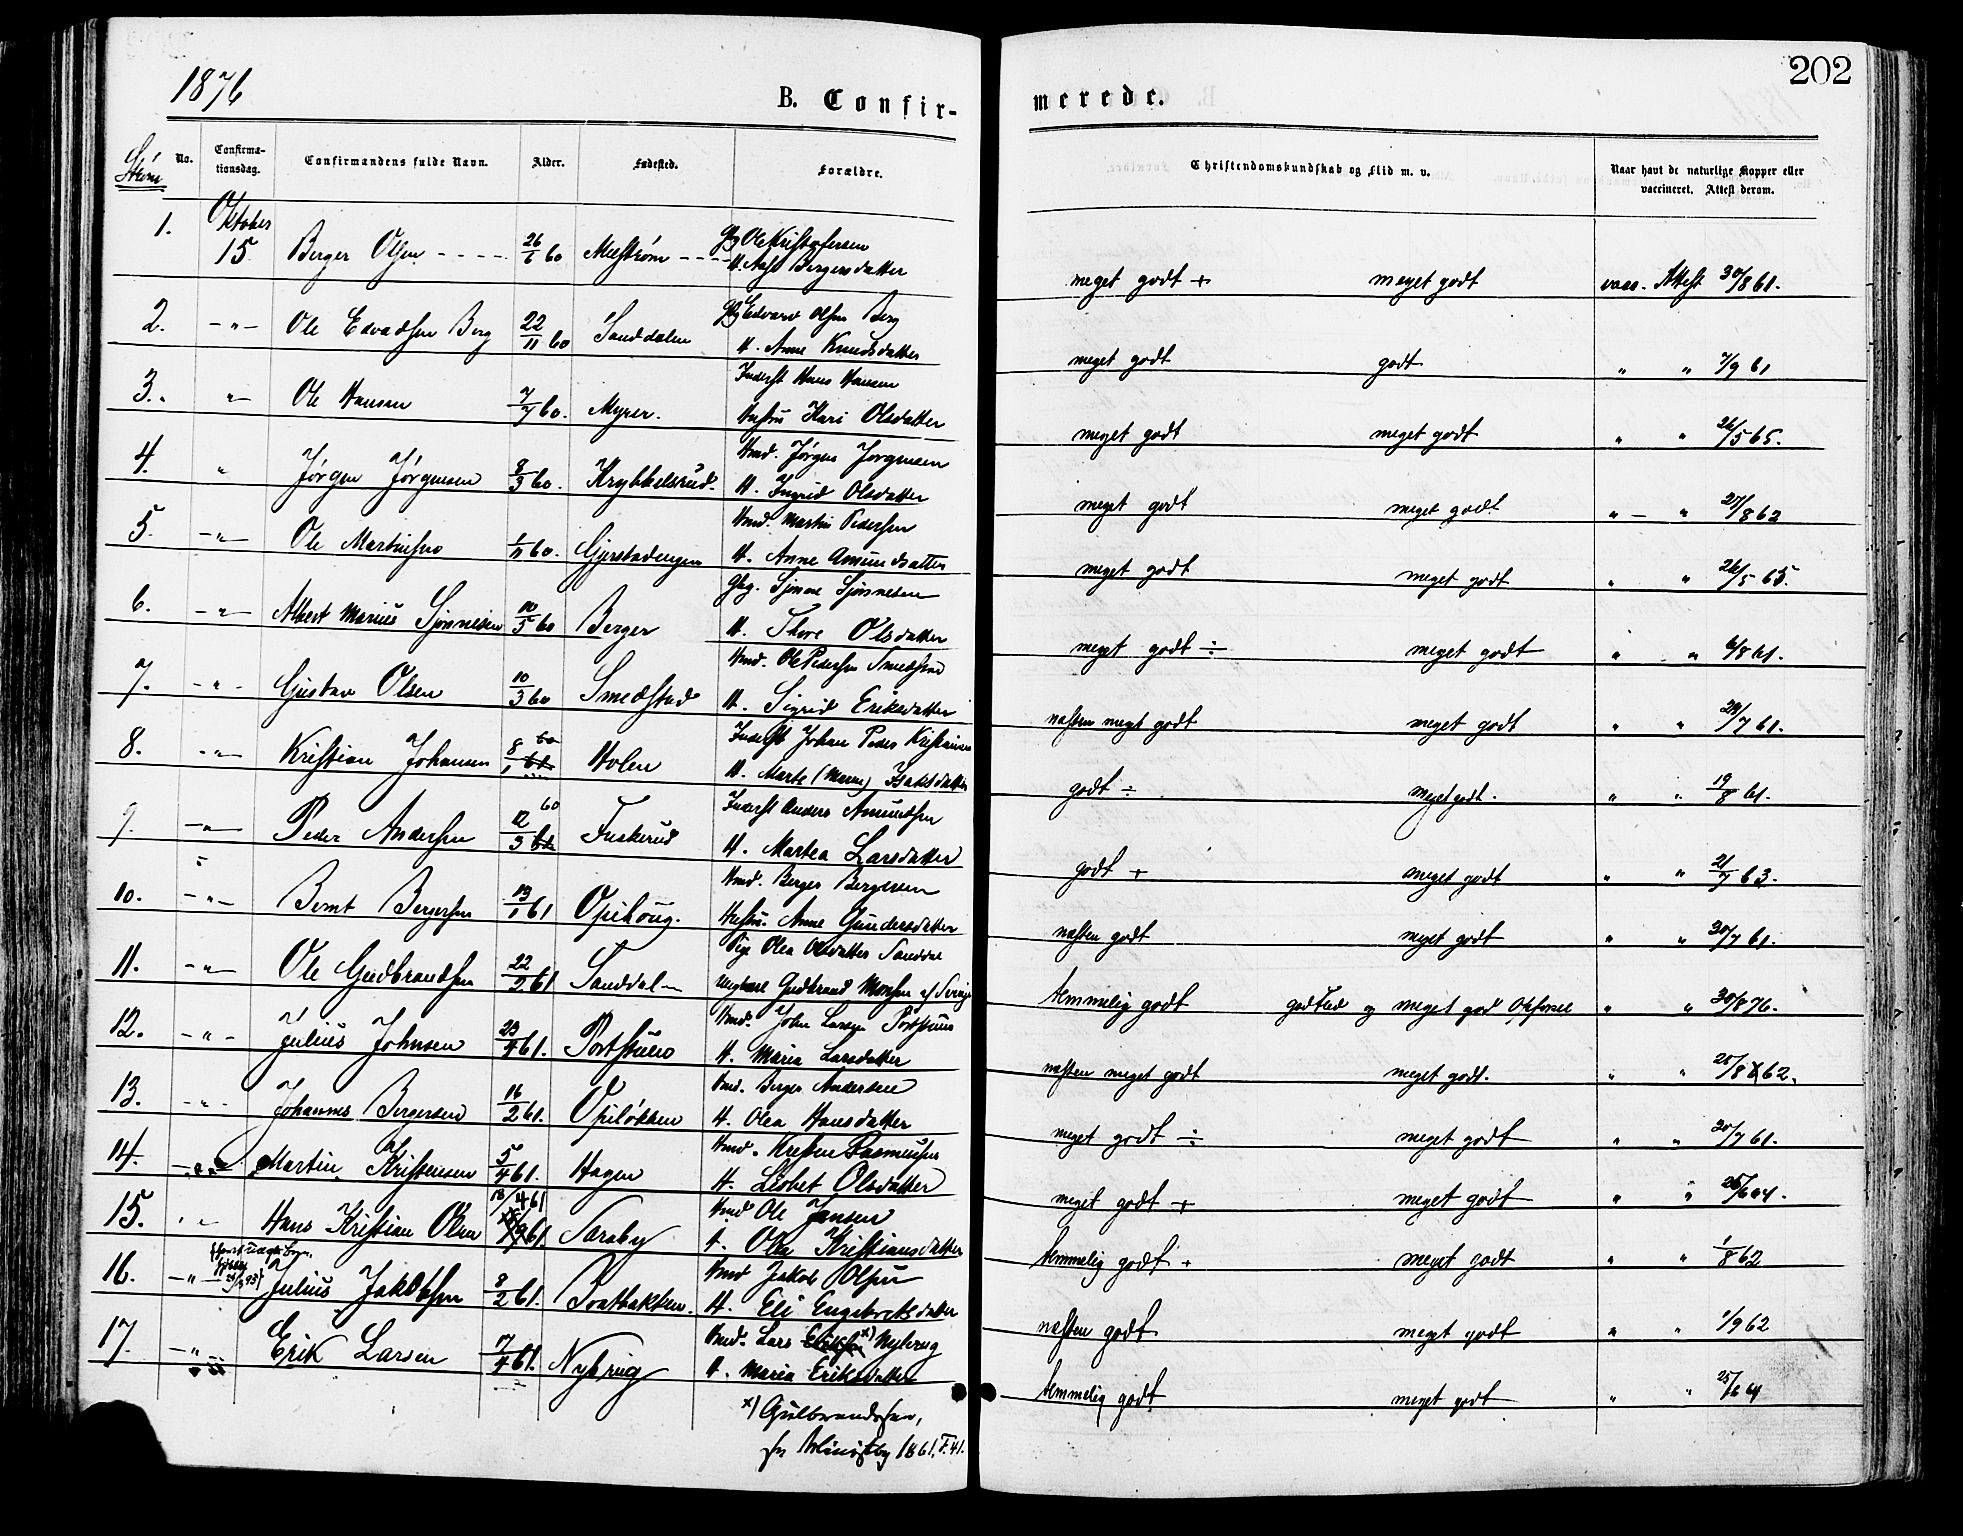 1876
B. Confir-
merede.
202
No.
Confirma-
tionsdag.
Confirmandens fulde Navn.
Alder.
Fødested.
Forældre.
Christendomskundskab og Flid m. v.
Naar havt de naturlige Kopper eller
vaccineret. Attest derom.
Oktober
Ole Kristofersen
1. 15. Berger Olsen 26/6 60
H. Bergersdatter
meget godt + meget godt vacc. Attest 30/8 61.
Edvard Olsen Berg
2. -"- Ole Edvadsen Berg 22/11 60 Sanddalen
H. Anne Knudsdatter
meget godt godt " " 7/9 61
Inderst Hans Hansen
3. " Ole Hansen 7/7 60. Myrer.
Hustru Kari Olsdatter
meget godt meget godt " " 26/5 65.
Gmd. Jørgen Jørgensen
4. " Jørgen Jørgensen 8/3 60. Krykkelsrud
H. Ingrid Olsdatter
meget godt meget godt " - " 27/8 62
Gmd. Martin Pedersen
5. -"- Ole Martinsen 1/11 60. Gjerstadengen
H. Anne Amundsdatter
meget godt meget godt " " 26/5 65.
Gbg. Simen Sjønnesen
6. -"- Albert Marius Sjønnesen 10/5 60 Berger
H. Thore Olsdatter
meget godt ÷ meget godt " " 6/8 61.
Gmd. Ole Pedersen Smedstad
7. -"- Gustav Olsen 10/3 60 Smedstad
H. Sigrid Eriksdatter
næsten meget godt meget godt " " 24/7 61.
Inderst Johan Peder Kristiansen
8. -"- Kristian Johansen 8/1 61 60 Holen
H. Marte (Maren) Isaksdatter
godt ÷ meget godt. " " 19/8 61.
Inderst Anders Amundsen
9. -"- Peder Andersen 12/3 61 60 Fuskerud
H. Martea Larsdatter
godt + meget godt " " 21/7 63.
Gmd. Berger Bergersen
10. -"- Bernt Bergersen 13/1 61 Opihoug.
Hustru. Anne Gundersdatter
næsten godt meget godt " " 30/7 61.
Pige Olea Olsdatter Sanddal
11. -"- Ole Gudbrandsen 22/2 61 Sanddal
Ungkarl Gudbrand Monsen af Sverige
temmelig godt god Flid og meget god Opførsel " " 30/8 76.
Gmd. John Larsen Portstuen
12. -"- Julius Johnsen 23/4 61. Portstuen
H. Maria Larsdatter
næsten meget godt meget godt. " " 25/8 62.
Gmd. Berger Andersen
13. -"- Johannes Bergersen 16/2 61. Opiløkken
H. Olea Hansdatter
meget godt ÷ meget godt " " 30/7 61.
Gmd. Kristen Rasmusen
14. -"- Martin Kristensen 5/4 61. Hagen
H. Lisbet Olsdatter
meget godt + meget godt " " 25/6 64.
18/4 61
Gmd Ole Jensen
15. " Hans Kristian Olsen Taraby
H. Olea Kristiansdatter
temmelig godt + meget godt " " 1/8 62
Gmd Jakob Olsen
16. -"- Julius Jakobsen 8/2 61.
H. Eli Engebretsdatter
næsten godt meget godt " " 1/9 62
Gmd. Lars Eriksen x) Nybrug
17. -"- Erik Larsen 7/4 61. Nybrug
H. Maria Eriksdatter
temmelig godt meget godt " " 25/6 64
x) Gulbrandsen,
1861, F. 41.